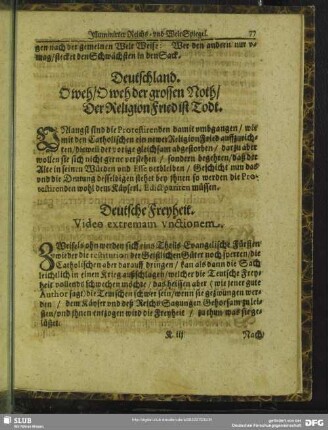 Illuminirter Reichs- und Welt-Spiegel. 77
gen nach der gemeinen Welt Weise: Wer den andern nur ver-
mag / stecket den Schwächsten in den Sack.
Deutschland.
O weh / O weh der grossen Noth /
Der Religion Fried ist Todt.
sind die Protestirenden damit umbgangen / wie
mit den Catholischen ein newer Religion Fried auffzurich-
ten / dieweil der vorige gleichsam abgestorben / darzu aber
wollen sie sich nicht gerne verstehen / sondern begehren / daß der
Alte in seinen Würden und Esse verbleiben. Geschicht nun das /
und die Deutung desselbigen stehet bey ihnen so werden die Pro-
testirenden wohl dem Käyserl. Edict pariren müssen.
Deutsche Freyheit.
Video extremam Vnctionem.
Zweifels ohn werden sich eins Theils Evangelische Fürsten
wieder die restitution der Geistlichen Güter noch sperren / die
Catholischen aber darauff dringen / kan als dann die Sach
leichtlich in einen Krieg außschlagen / welcher die Teutsche Frey-
heit vollends schwechen möchte / das heissen aber / wie jener gute
Author sagt / die Teutschen schwer sein / wenn sie gezwungen wer-
den / dem Käyser und des Reichs Satzungen Gehorsam zu lei-
sten / und ihnen entzogen wird die Freyheit / zu thun was sie ge-
lüstet.
K iij Nach
SLUB
Wir führen Wissen.
http://digital.slub-dresden.de/
gefördert von der
Deutschen Forschungsgemeinschaft
DFG